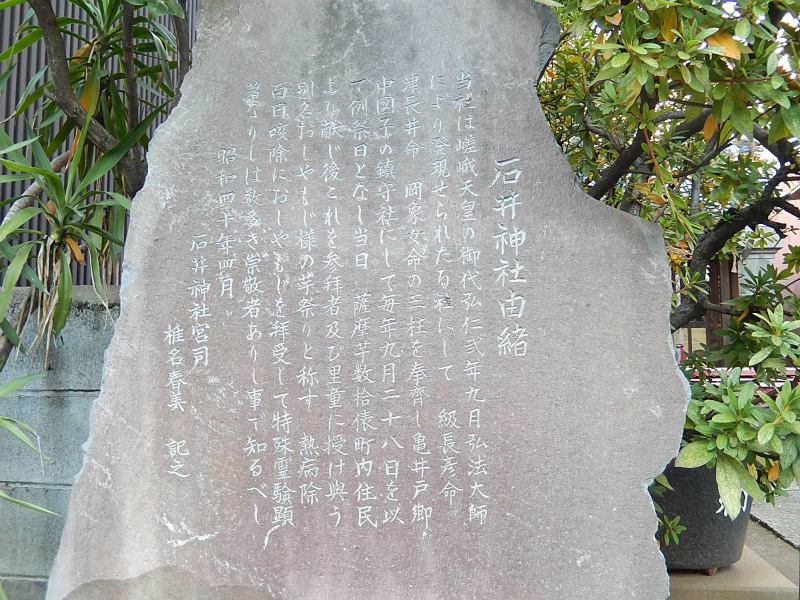 石井神社由緒
当社は嵯峨天皇の御代弘仁弐年九月弘法大師
により発現せられたる社にして 級長彦命
津長井命 岡象女命の三柱を奉齊し亀井戸郷
中図子の鎮守社にして毎年九月二十八日を以
て例祭日となし当日 薩摩芋数拾俵町内住民
より献じ後これを参拜者及び里童に授け與う
別名おしやもじ様の芋祭りと称す 熱病除
百日咳除におしやもじを拜受して特殊霊験顕
著なりしは数多き崇敬者ありし事で知るべし
昭和四十年四月
石井神社宮司
椎名春美 記之